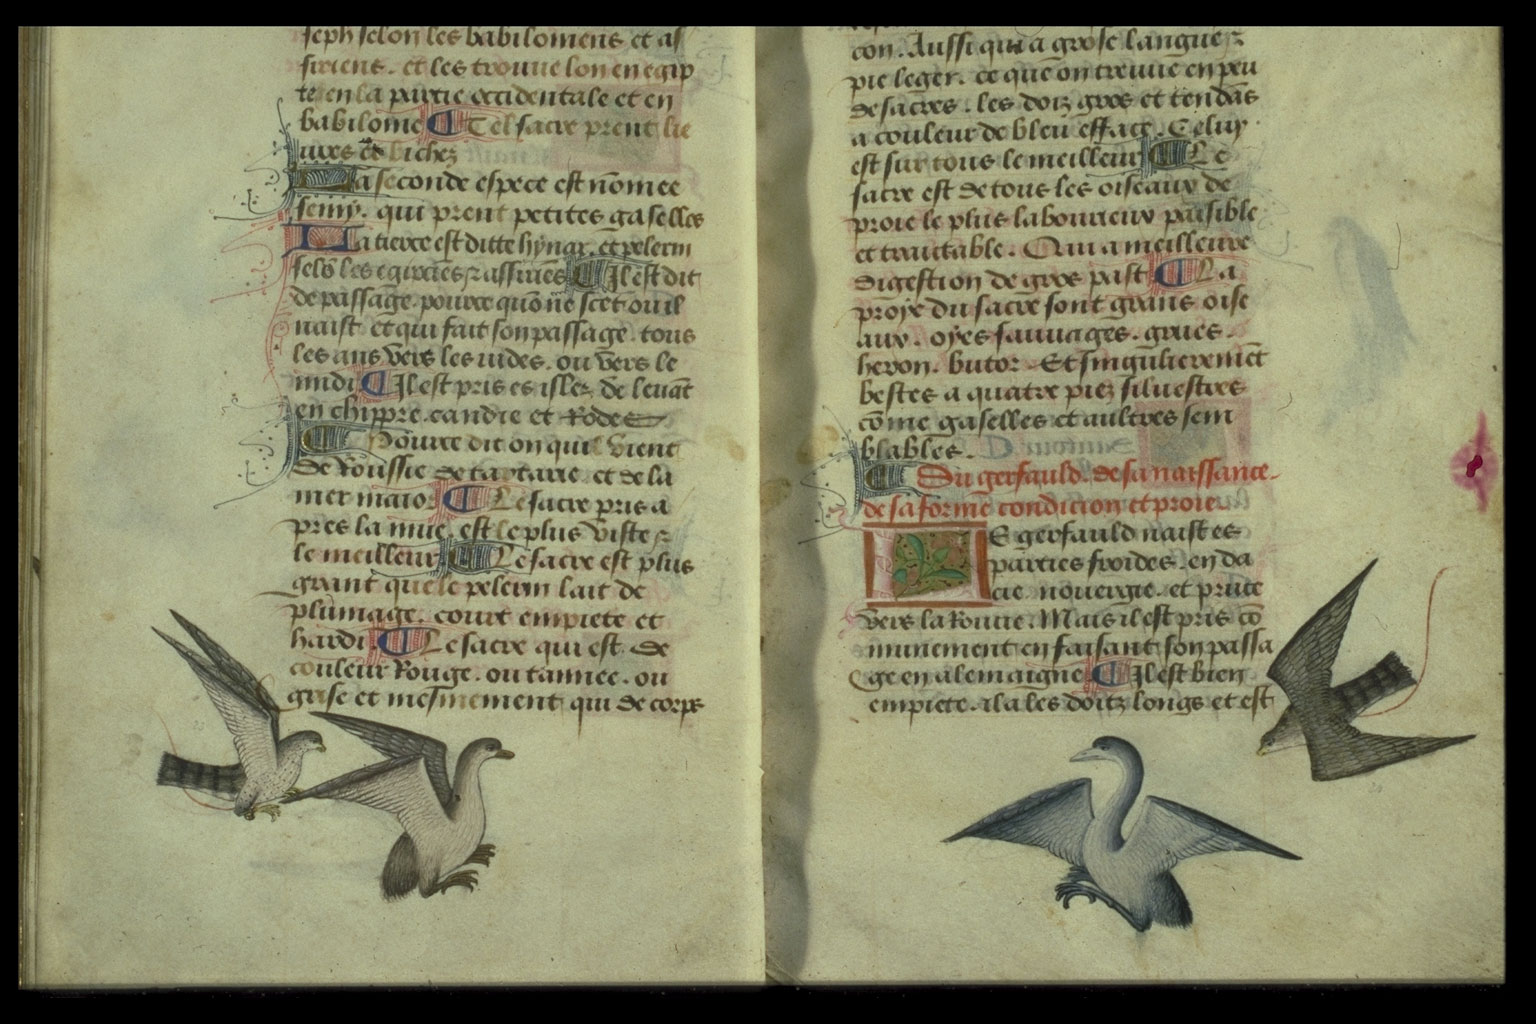 seph selon les babiloniens et as
siriens. et les trouve lon en egip
te en la partie occidentale et en
babilonie ¶ Tel sacre prent lie
vres et bichez
La seconde espece est nōmee
semy. qui prent petites gaselles
La tierce est ditte hynar. et pelerin
selō les egipciēs et assiriēs ¶ Il est dit
de passage. pource quō ne scet ou il
naist et qui fait son passage tous
les ans vers les indes. ou vers le
midi ¶ Il est pris es islez de levāt
en chippre. candie et Rodes
¶ Pource dit on quil vient
de Roussie de tartarie et de la
mer maior ¶ Le sacre pris a
pres la mue. est le plus viste et
le meilleur ¶ Le sacre est plus
grant que le pelerin lait de
plumage. court empiete et
hardi ¶ Le sacre qui est de
couleur Rouge. ou tannee. ou
grise et mesmement qui de corps
con. Aussi qui a grose langue et
pie leger. ce que on treuve en peu
de sacres. les doiz gros et tendās
a couleur de bleu efface. Celuy
est sur tous le meilleur ¶ Le
sacre est de tous les oiseaux de
proie le plus labourieux paisible
et traictable. Qui a meilleure
digestion de gros past ¶ La
proye du sacre sont grans oise
aux. oyes sauvages. grues.
heron. butor. Et singulieremēt
bestes a quatre piez silvestres
cōme gaselles et aultres sem
blables.
¶ Du gerfauld. de sa naissance.
de sa forme condicion et proie.
Le gerfauld naist es
parties froides. en da
cie nouergie. et pruce
vers la Roucie. Mais il est pris cō
munement en faisant son passa
ge en alemaigne ¶ Il est bien
empiete. il a les doitz longs et est